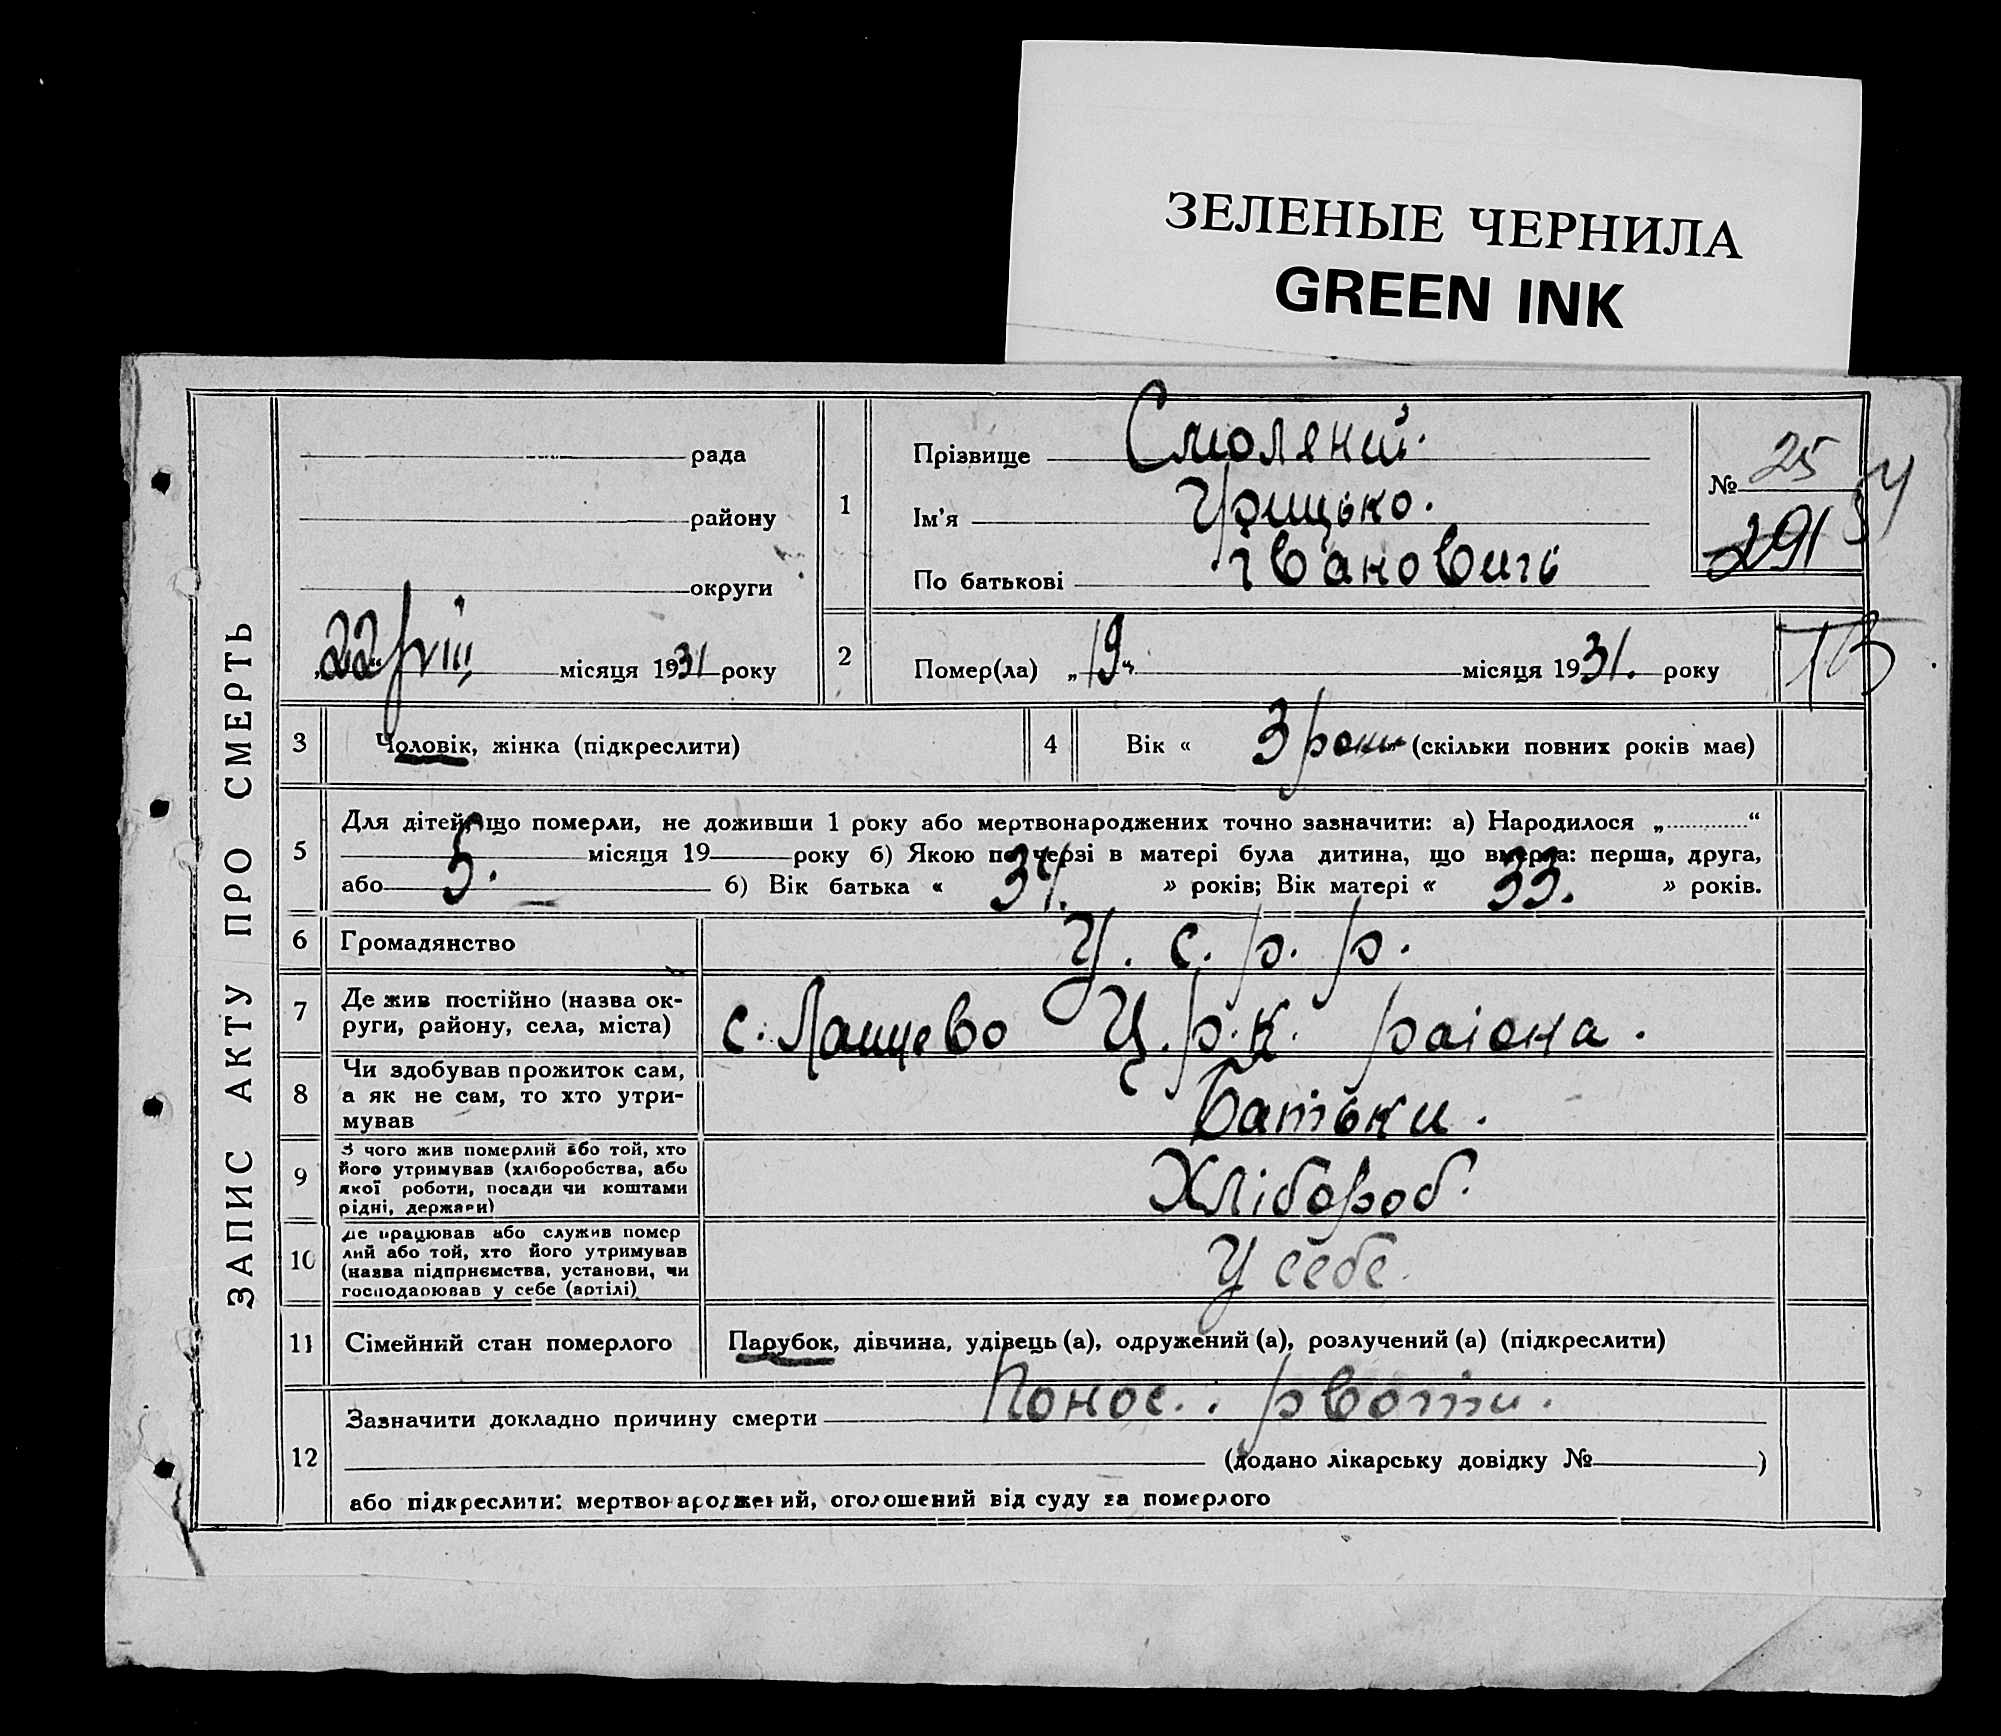 ЗЕЛЕНЫЕ ЧЕРНИЛА
GREEN INK
ЗАПИС АКТУ ПРО СМЕРТЬ
рада
району
округи
„22“ VIII місяця 1931 року
1
Прізвище Смоляний.
Ім'я Грицько.
По батькові Івановичь
№ 25
291
2 Помер(ла) „19“ місяця 1931. року
3 Чоловік, жінка (підкреслити)
4 Вік « 3 роки » (скільки повних років має)
5 Для дітей, що померли, не доживши 1 року або мертвонароджених точно зазначити: а) Народилося „ “
місяця 19 року б) Якою по черзі в матері була дитина, що вмерла: перша, друга,
або 5. б) Вік батька « 34. » років; Вік матері « 33. » років.
6 Громадянство У. с. р. р.
7 Де жив постійно (назва ок-
руги, району, села, міста) с. Лящево Ц.р.к. раіона.
8 Чи здобував прожиток сам,
а як не сам, то хто утри-
мував Батьки.
9 З чого жив померлий або той, хто
його утримував (хліборобства, або
якої роботи, посади чи коштами
рідні, держави) Хлібороб.
10 Де працював або служив помер
лий або той, хто його утримував
(назва підприємства, установи, чи
господарював у себе (артілі) У себе.
11 Сімейний стан померлого Парубок, дівчина, удівець (а), одружений (а), розлучений (а) (підкреслити)
12 Зазначити докладно причину смерти Понос. рвоти.
(додано лікарську довідку № )
або підкреслити: мертвонароджений, оголошений від суду за померлого